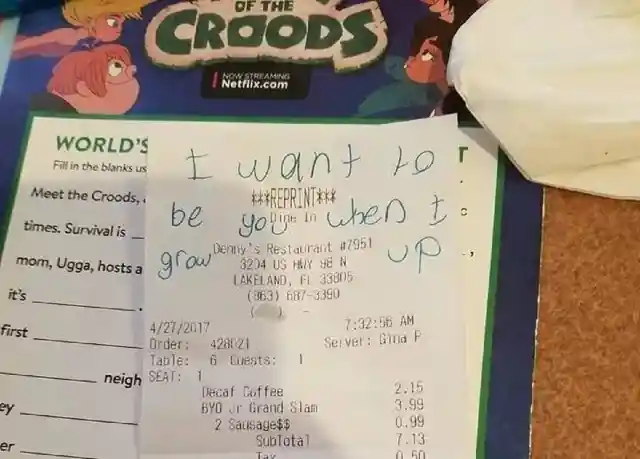 OF THE
CROODS
NOW STREAMING
Netflix.com
WORLD'S
Fill in the blanks us
Meet the Croods,
times. Survival is
mom, Ugga, hosts a
it's
first
neigh
ey
er
T
I want to
***REPRINT***
be you when I
Dine In
grow up
Denny's Restaurant #7951
3204 US HWY 98 N
LAKELAND, FL 33805
(863) 687-3390
4/27/2017 7:32:56 AM
Order: 428021 Server: Gina P
Table: 6 Guests: 1
SEAT: 1
Decaf Coffee 2.15
BYO Jr Grand Slam 3.99
2 Sausage$$ 0.99
SubTotal 7.13
Tax 0.50